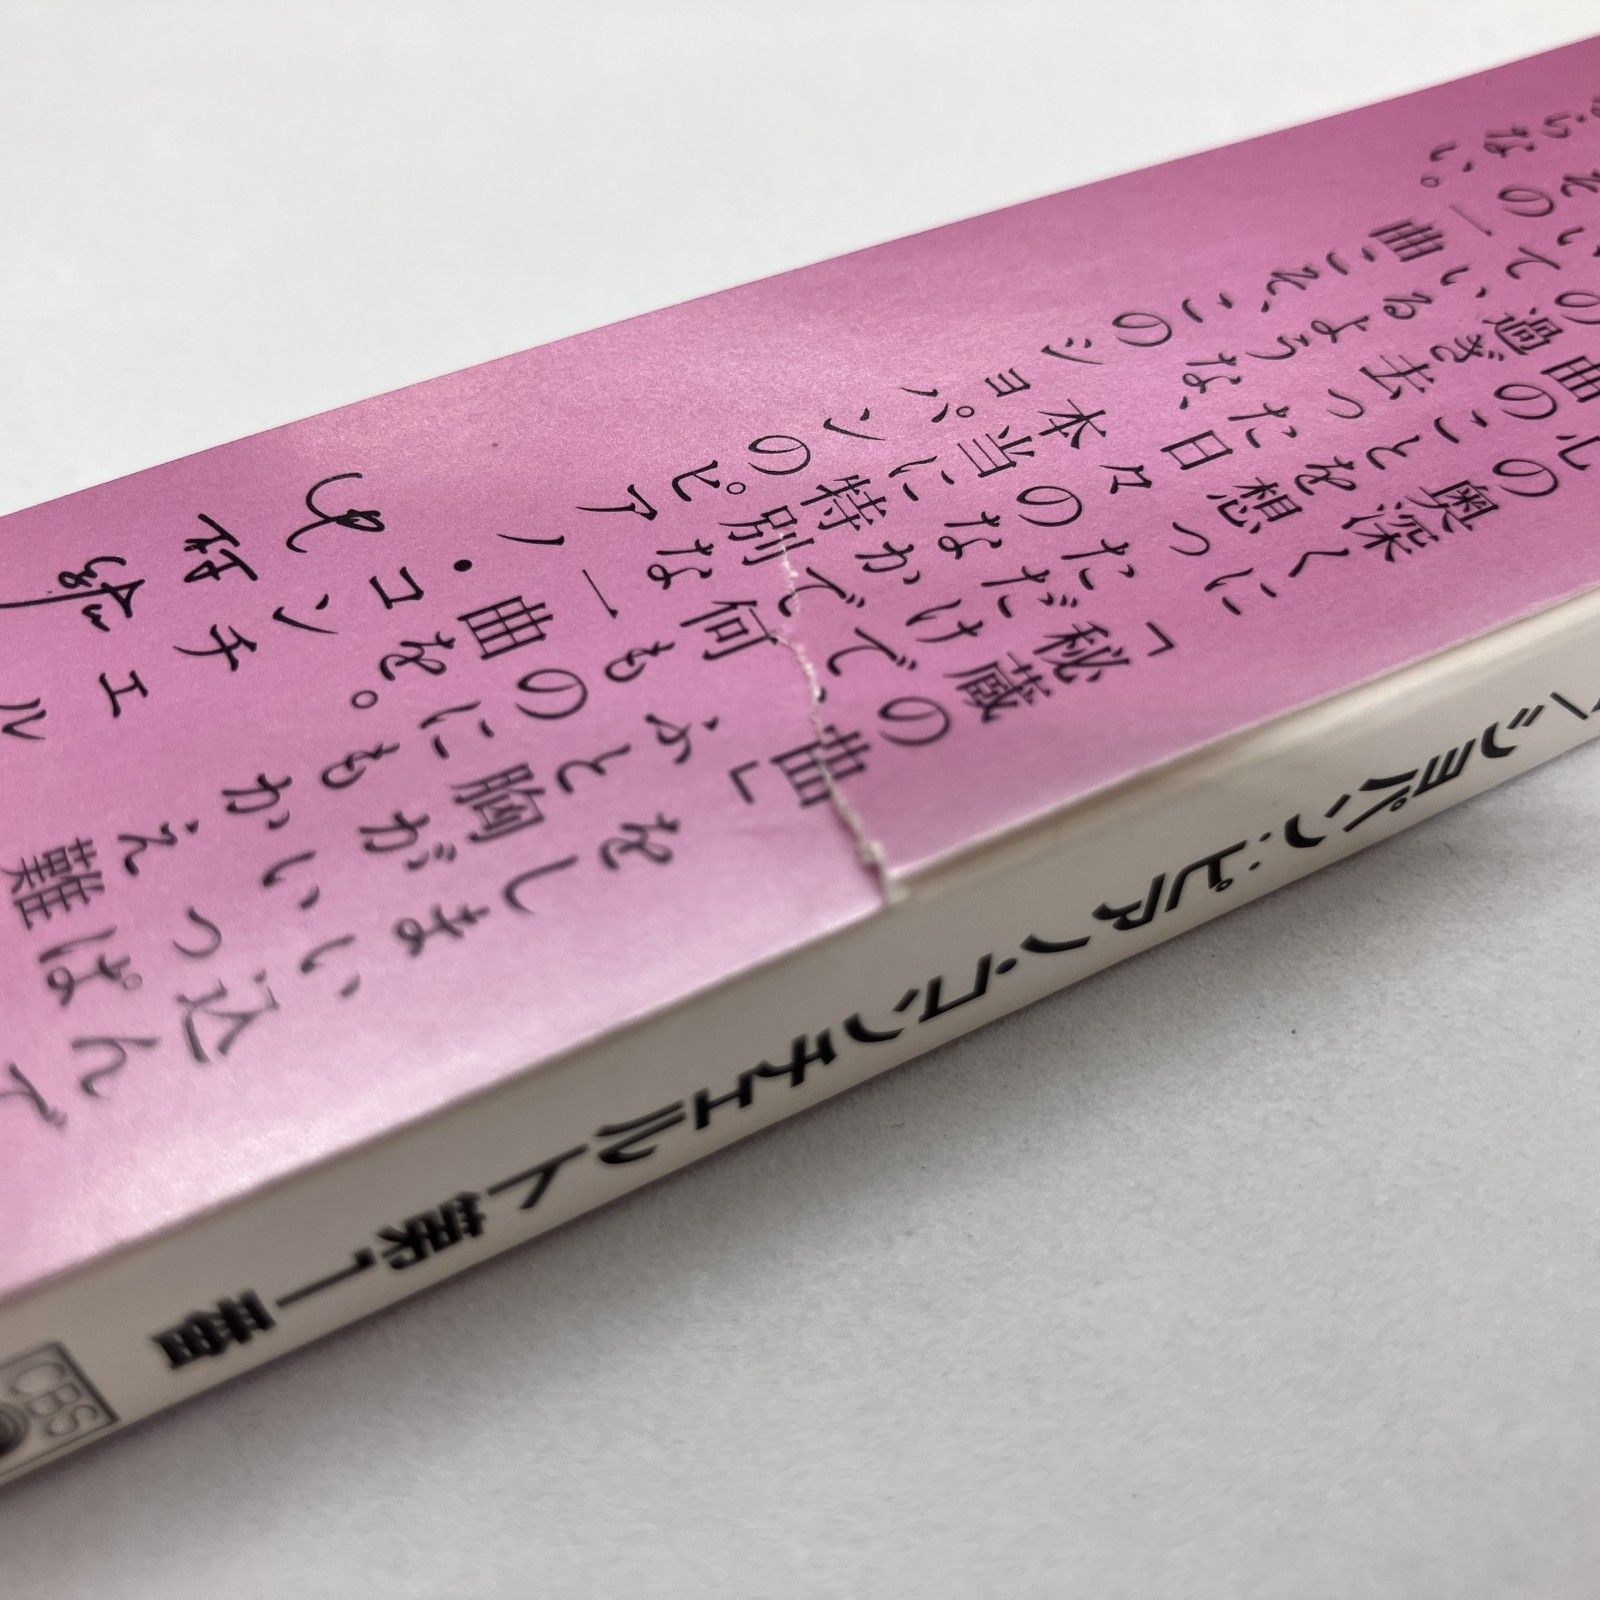 心の奥深くに「秘蔵の曲」をしまい込んで
曲のことを想っただけで、ふと胸がいっぱ
の過ぎ去った日々のなかで何ものにもかえ難
いているような、本当に特別な一曲を。
その一曲こそ、このショパンのピアノ・コンチェル
らない。
中村紘
ショパン:ピアノ・コンチェルト第一番
CBS